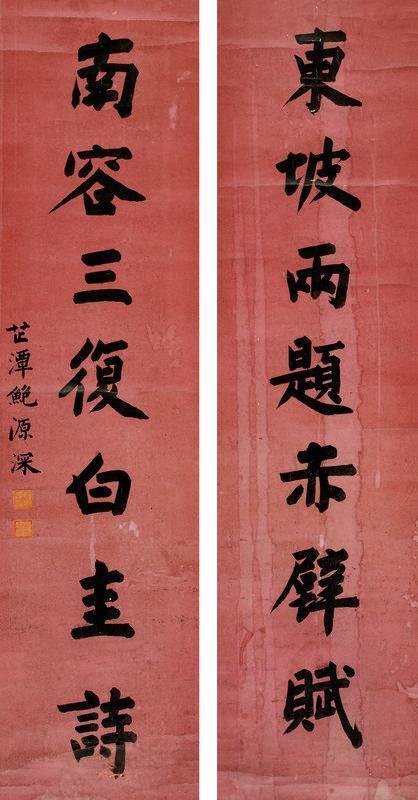 東坡兩題赤壁賦
南容三復白圭詩
芷潭鮑源深